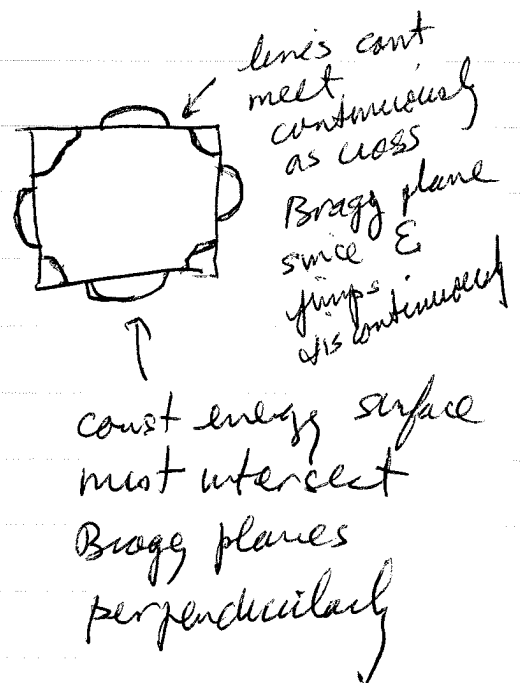 lines can't
meet
continuously
as cross
Bragg plane
since E
jumps
discontinuously
const energy surface
must intersect
Bragg planes
perpendicularly